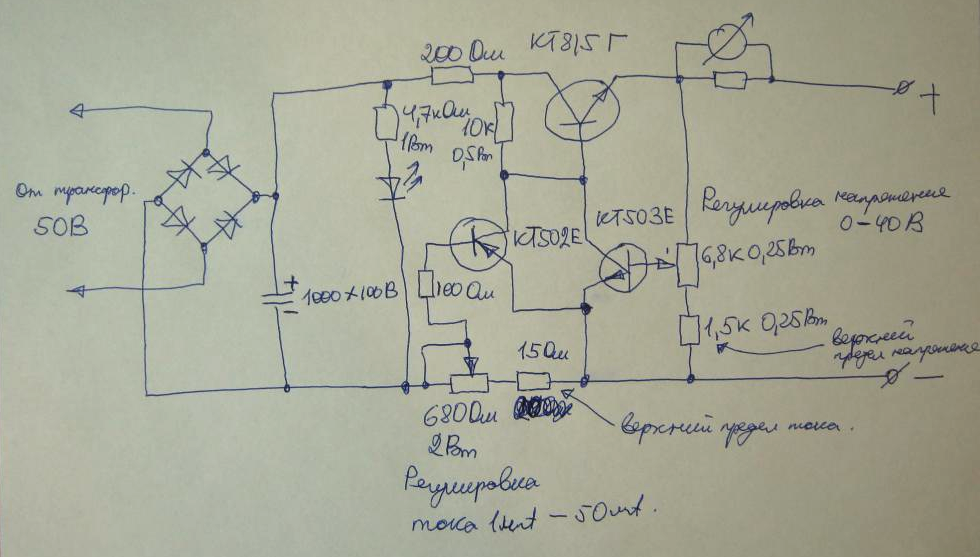 200 Ом
КТ815Г
+
4,7кОм
1Вт
10к
0,5Вт
От трансфор.
50В
КТ502Е
КТ503Е
Регулировка напряжения
0-40В
+
1000×100В
-
100 Ом
6,8к 0,25Вт
1,5к 0,25Вт
верхний
предел напряжения
-
15Ом
680Ом
2Вт
верхний предел тока.
Регулировка
тока 1мА - 50мА.